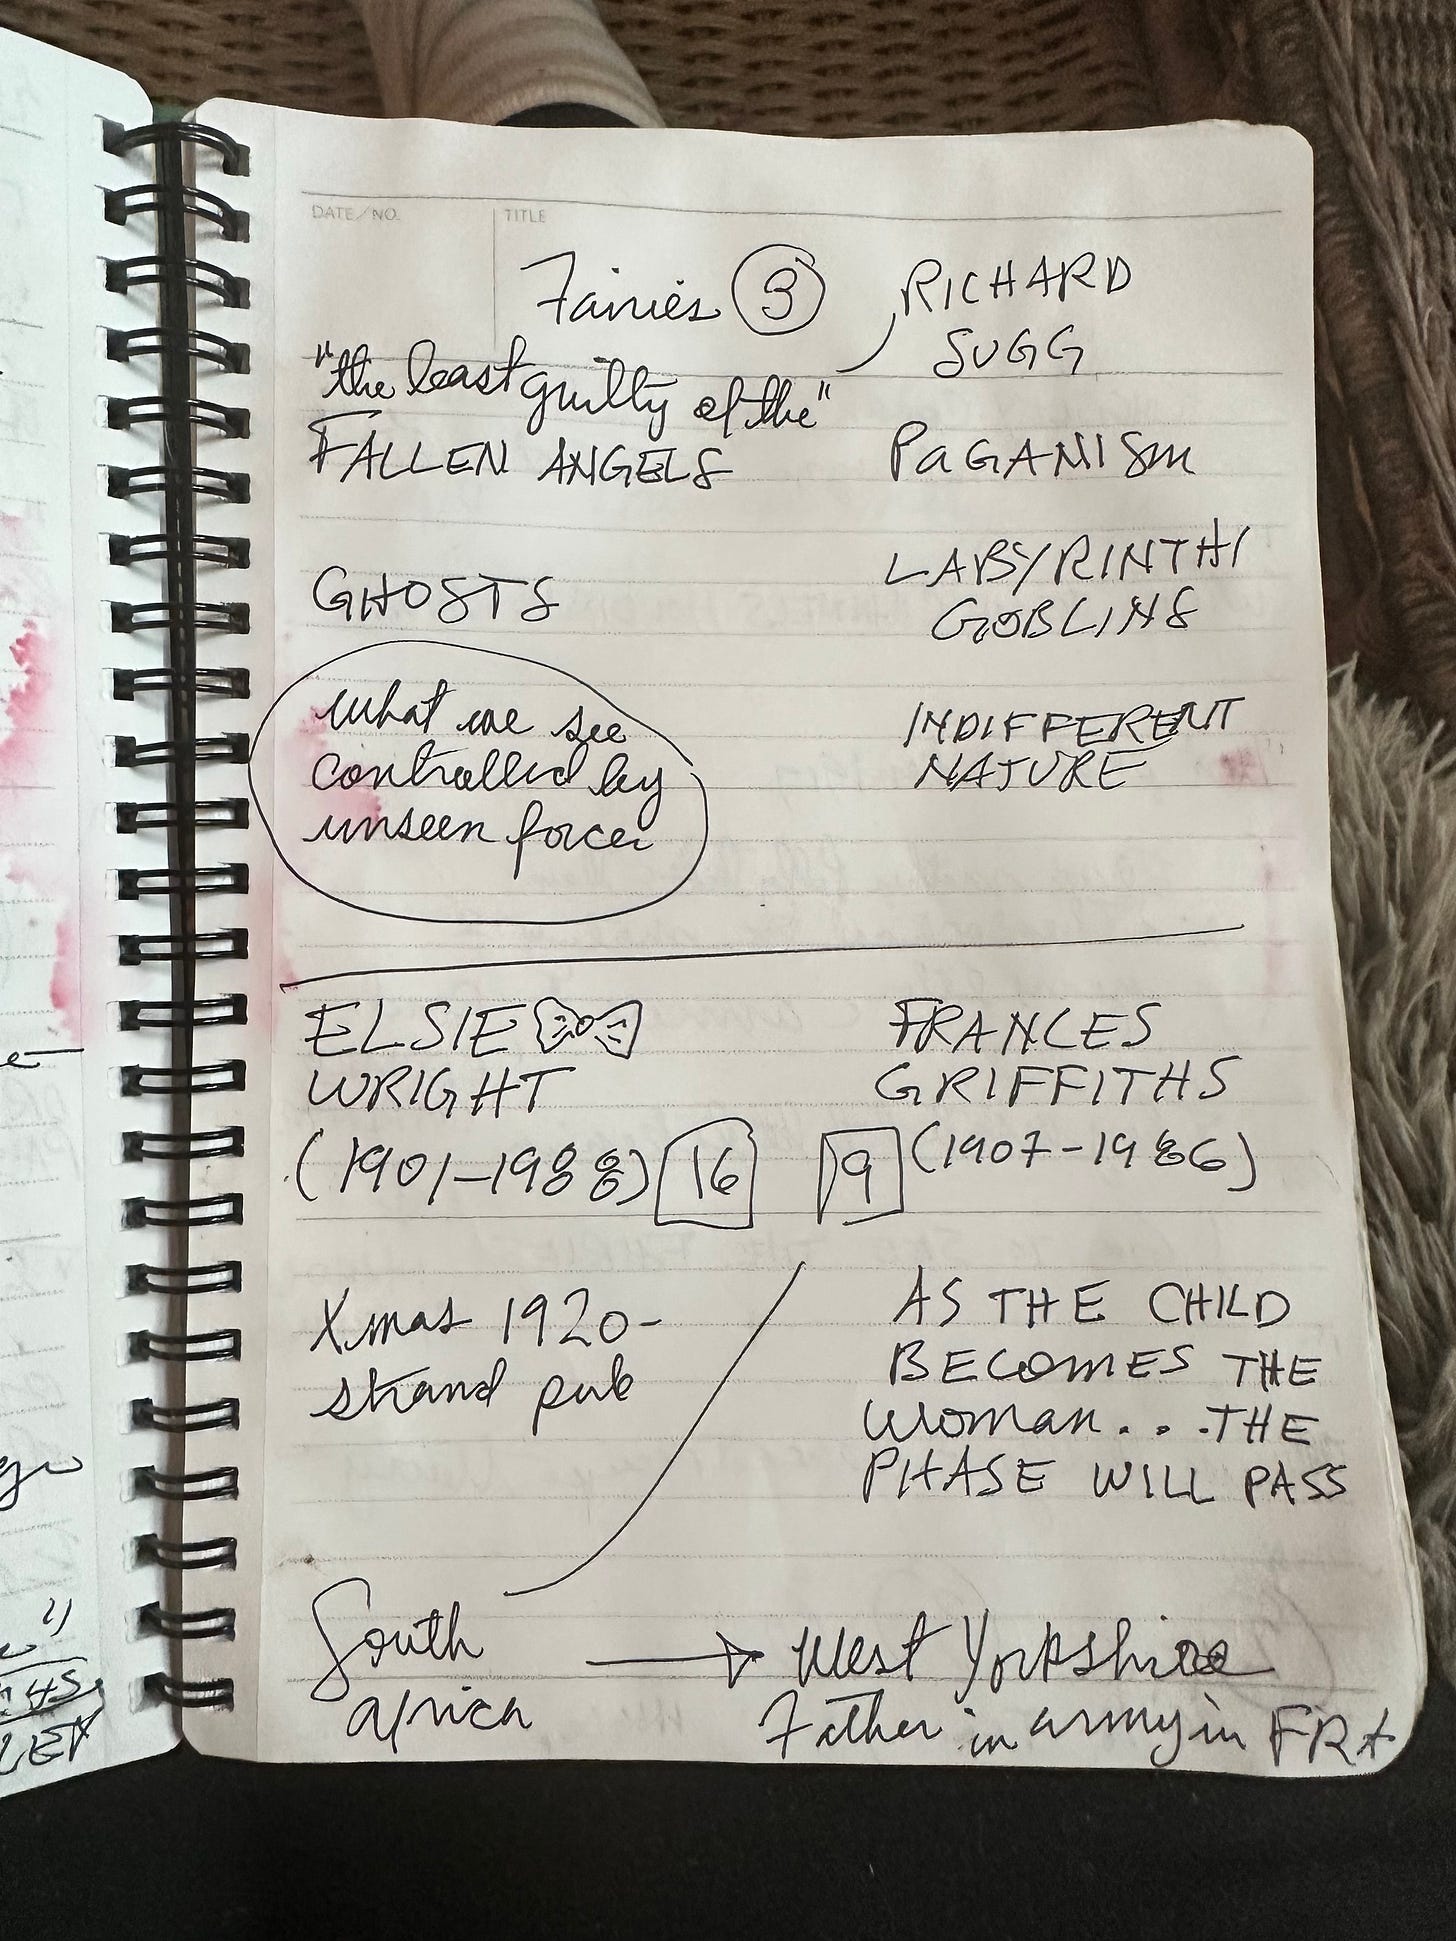 DATE/NO.
TITLE
Fairies 3
RICHARD
SUGG
"the least guilty of the"
FALLEN ANGELS
PAGANISM
GHOSTS
LABYRINTH/
GOBLINS
what we see
controlled by
unseen forces
INDIFFERENT
NATURE
ELSIE
WRIGHT
(1901-1988) 16
FRANCES
GRIFFITHS
9 (1907-1986)
Xmas 1920-
strand pub
AS THE CHILD
BECOMES THE
WOMAN... THE
PHASE WILL PASS
South
africa
West Yorkshire
Father in army in FRA